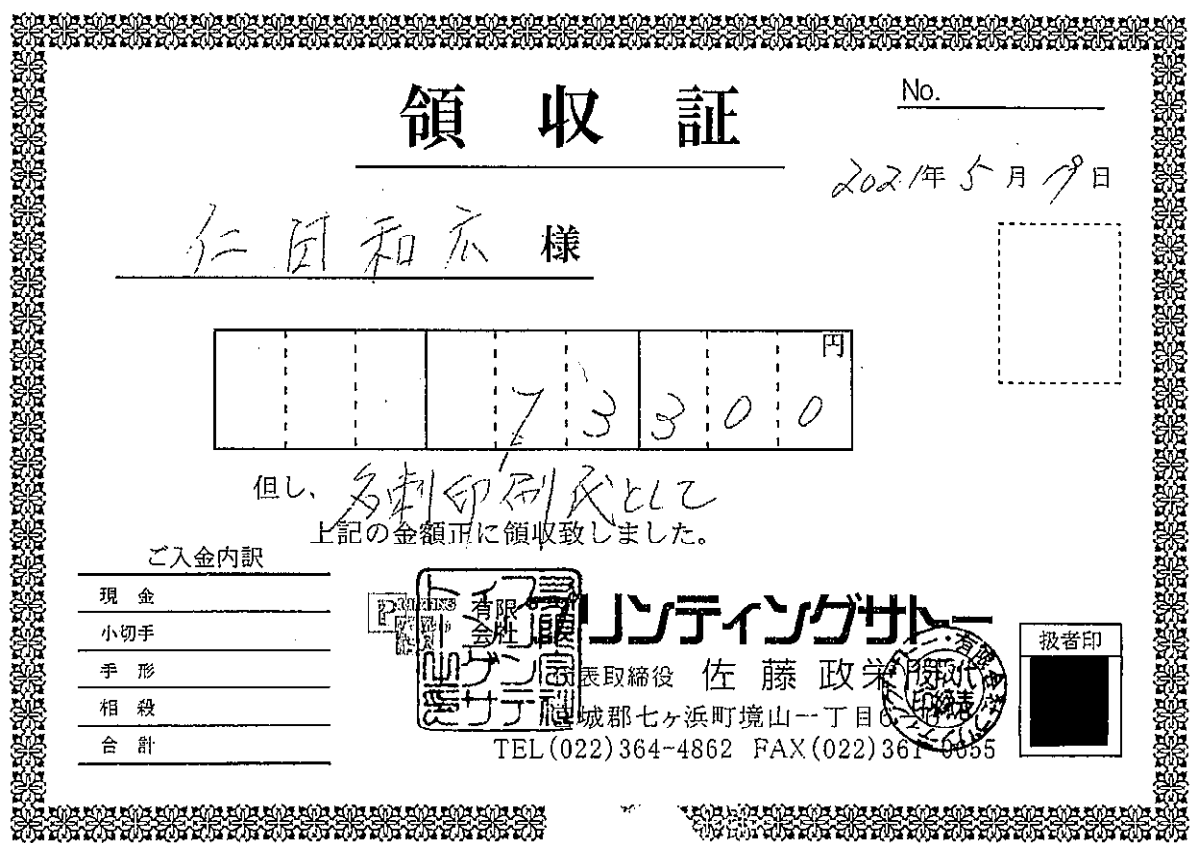 領収証
No.
2021年5月19日
仁田和広 様
円
73300
但し、名刺印刷代として
上記の金額正に領収致しました。
ご入金内訳
現金
小切手
手形
相殺
合計
有限会社 プリンティングサトー
代表取締役 佐藤政栄
城郡七ヶ浜町境山一丁目
TEL(022)364-4862 FAX(022)361-0055
扱者印